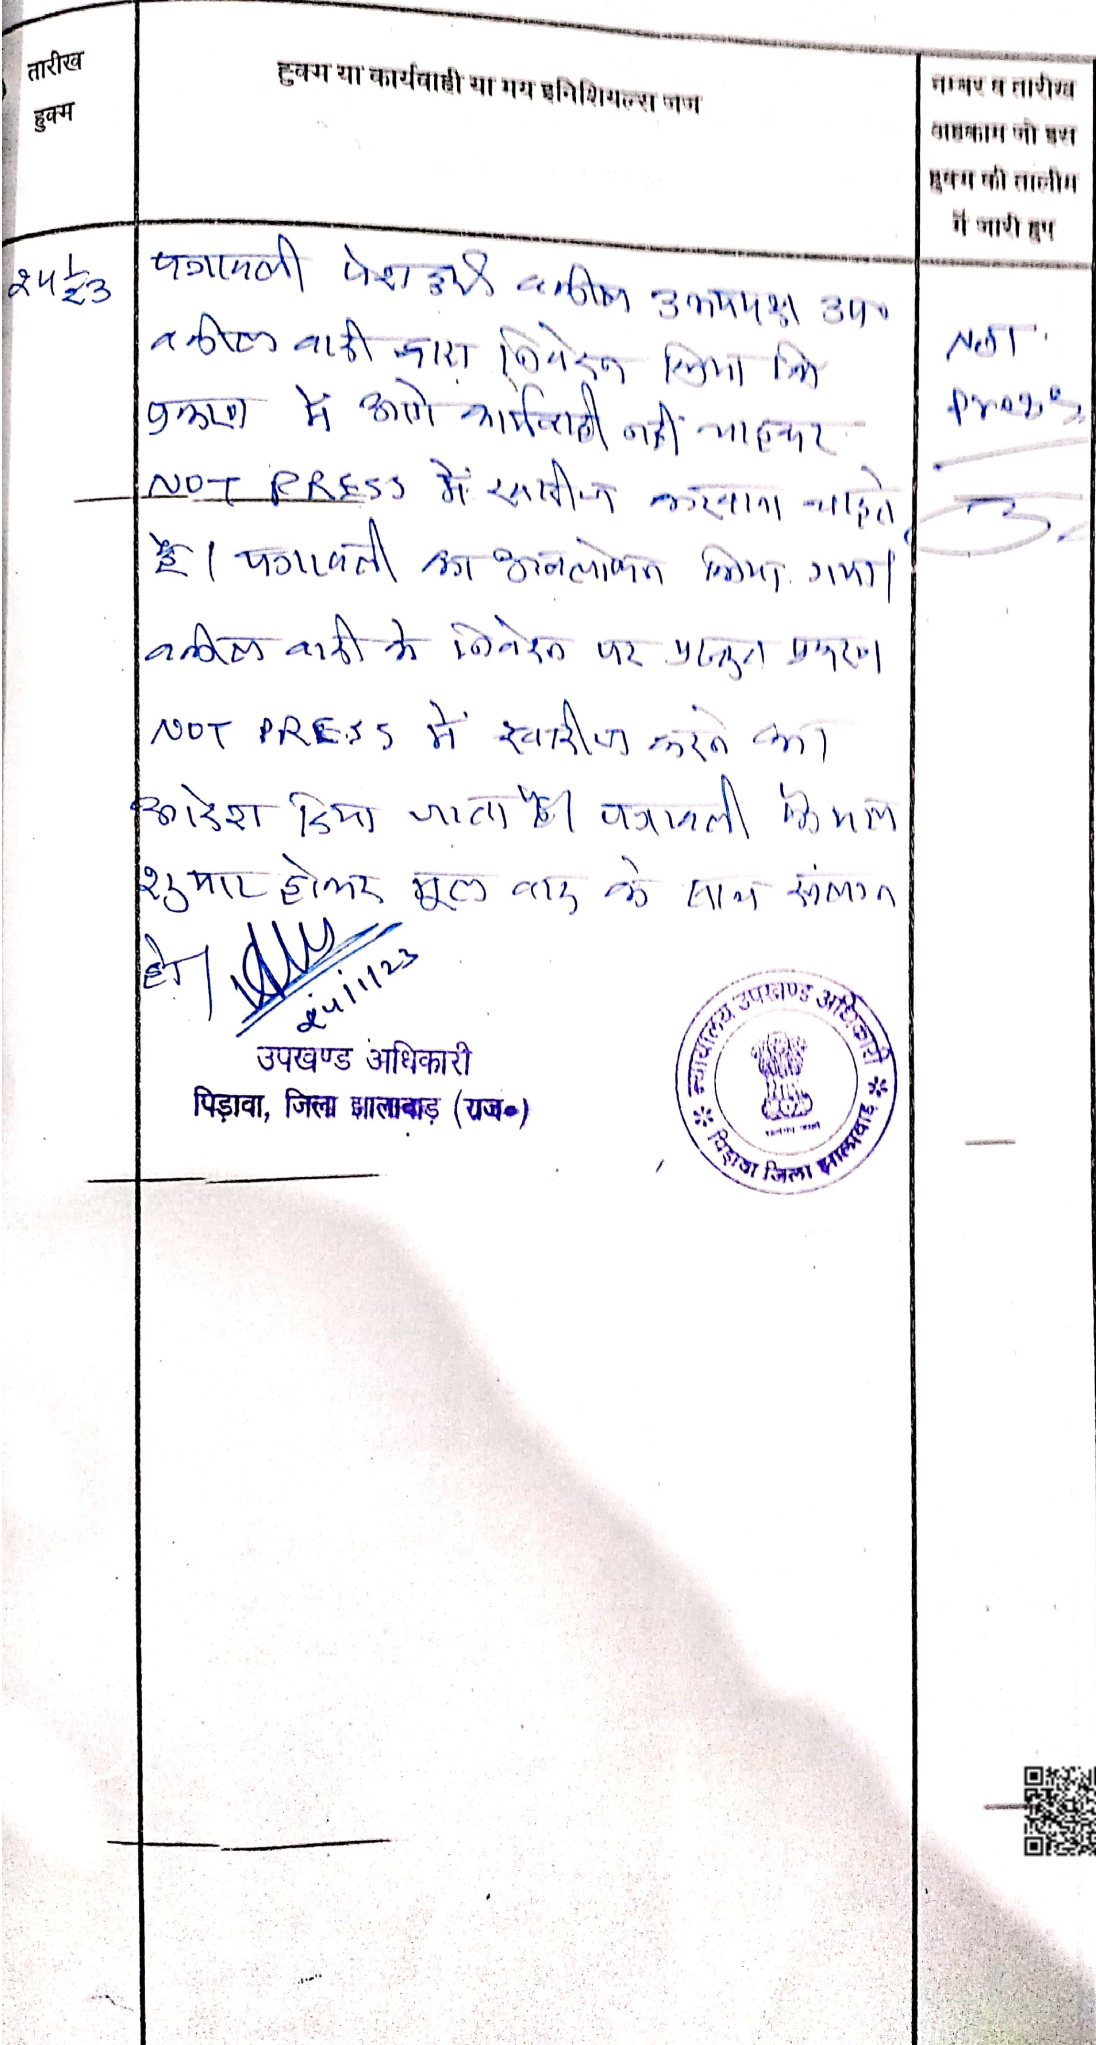 तारीख
हुक्म
हुक्म या कार्यवाही या मय इनिशियल्स जज
नम्बर व तारीख
अहकाम जो इस
हुक्म की तालीम
में जारी हुए
24/1/23
पत्रावली पेश हुई वकील उभयपक्ष उप०
वकील वादी द्वारा निवेदन किया कि
प्रकरण में आगे कार्यवाही नहीं चाहकर
NOT PRESS में खारीज करवाना चाहते
है। पत्रावली का अवलोकन किया गया।
वकील वादी के निवेदन पर प्रस्तुत प्रकरण
NOT PRESS में खारीज करने का
आदेश दिया जाता है। पत्रावली फैसल
शुमार होकर मूल वाद के साथ संलग्न
हो।
NOT
Press
24/1/23
उपखण्ड अधिकारी
पिड़ावा, जिला झालावाड़ (राज०)
न्यायालय उपखण्ड अधिकारी
पिड़ावा जिला झालावाड़